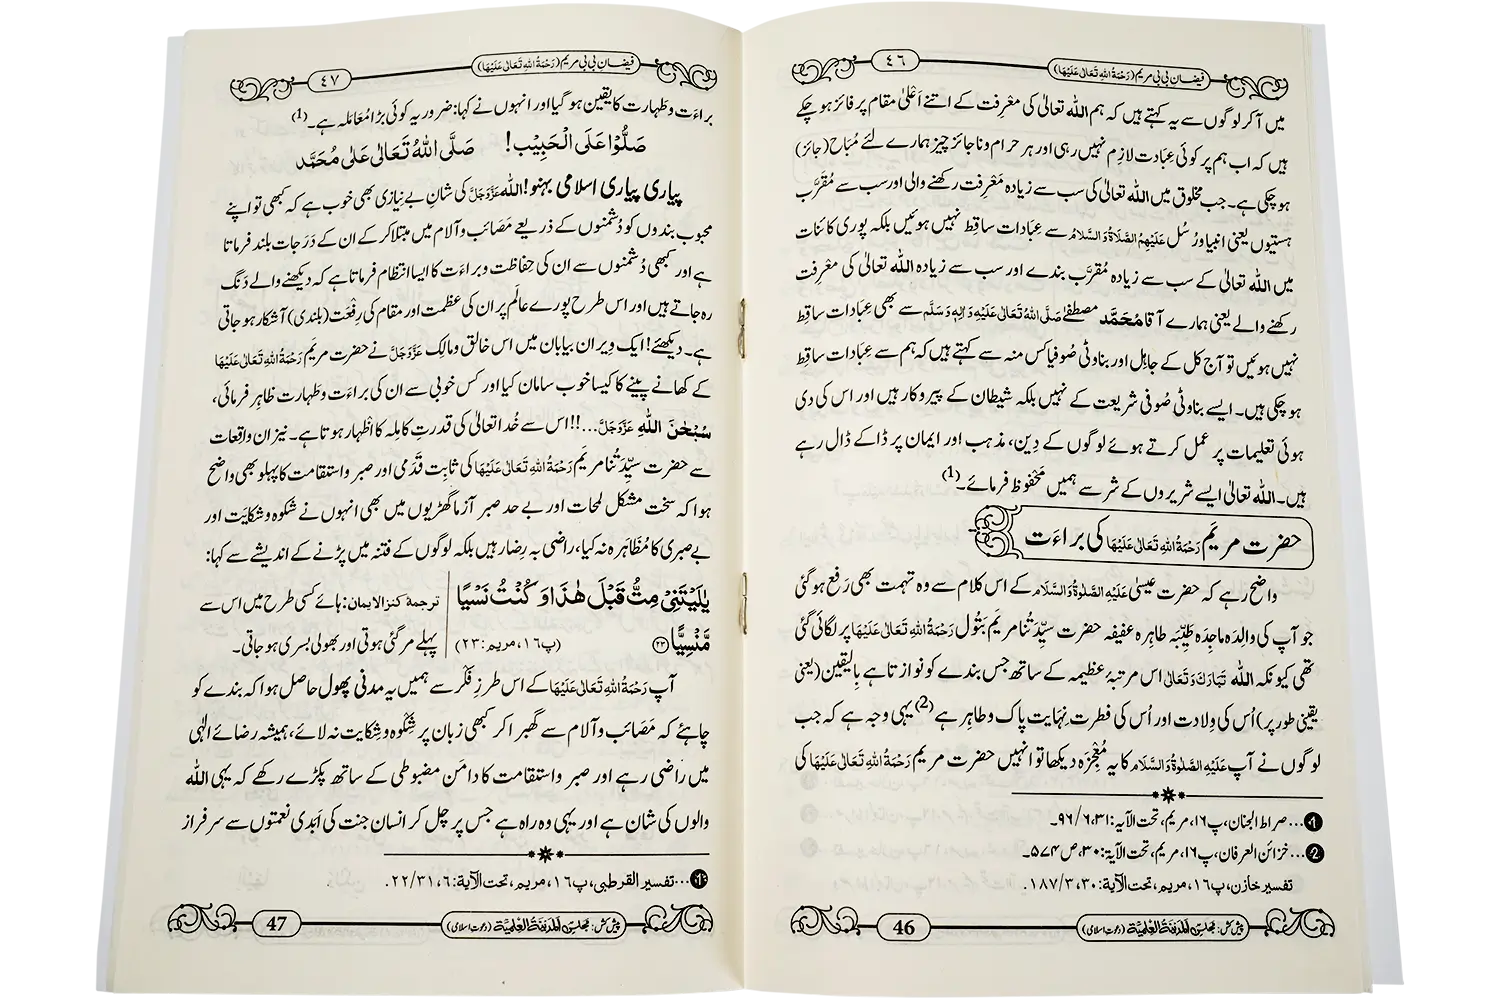 ٤٦
فیضانِ بی بی مریم (رَحْمَۃُ اللہِ تَعَالٰی عَلَیْہَا)
میں آکر لوگوں سے یہ کہتے ہیں کہ ہم اللہ تعالیٰ کی معْرِفت کے اتنے اَعْلیٰ مقام پر فائز ہو چکے
ہیں کہ اب ہم پر کوئی عِبادت لازِم نہیں رہی اور ہر حرام وناجائز چیز ہمارے لئے مُبَاح (جائز)
ہو چکی ہے۔ جب مخلوق میں اللہ تعالیٰ کی سب سے زیادہ معْرِفت رکھنے والی اور سب سے مُقَرَّب
ہستیوں یعنی انبیا ورُسُل عَلَیْہِمُ الصَّلَاۃُ وَالسَّلَامُ سے عِبادات ساقِط نہیں ہوئیں بلکہ پوری کائنات
میں اللہ تعالیٰ کے سب سے زیادہ مُقَرَّب بندے اور سب سے زیادہ اللہ تعالیٰ کی معْرِفت
رکھنے والے یعنی ہمارے آقا مُحَمَّد مصطفےٰ صَلَّی اللہُ تَعَالٰی عَلَیْہِ وَاٰلِہٖ وَسَلَّم سے بھی عِبادات ساقِط
نہیں ہوئیں تو آج کل کے جاہِل اور بناوٹی صُوفیا کس منہ سے کہتے ہیں کہ ہم سے عِبادات ساقِط
ہو چکی ہیں۔ ایسے بناوٹی صُوفی شریعت کے نہیں بلکہ شیطان کے پیروکار ہیں اور اس کی دی
ہوئی تعلیمات پر عمل کرتے ہوئے لوگوں کے دِین، مذہب اور ایمان پر ڈاکے ڈال رہے
ہیں۔ اللہ تعالیٰ ایسے شریروں کے شر سے ہمیں مَحْفُوظ فرمائے۔(1)
حضرت مریَم رَحْمَۃُ اللہِ تَعَالٰی عَلَیْہَا کی براءَت
واضح رہے کہ حضرت عیسیٰ عَلَیْہِ الصَّلٰوۃُ وَالسَّلَام کے اس کلام سے وہ تہمت بھی رَفع ہو گئی
جو آپ کی والِدہ ماجِدہ طَیِّبَہ طاہِرہ عفیفہ حضرت سیِّدَتُنا مریَم بَتُول رَحْمَۃُ اللہِ تَعَالٰی عَلَیْہَا پر لگائی گئی
تھی کیونکہ اللہ تَبَارَکَ وَتَعَالٰی اس مرتبۂ عظیمہ کے ساتھ جس بندے کو نوازتا ہے بِالیقین (یعنی
یقینی طور پر) اُس کی وِلادت اور اُس کی فطرت نِہایت پاک وطاہِر ہے(2) یہی وجہ ہے کہ جب
لوگوں نے آپ عَلَیْہِ الصَّلٰوۃُ وَالسَّلَام کا یہ مُعْجِزَہ دیکھا تو انہیں حضرت مریَم رَحْمَۃُ اللہِ تَعَالٰی عَلَیْہَا کی
1...صراط الجنان، پ١٦، مریم، تحت الآیہ:٣١، ٦/٩٦۔
2...خزائن العرفان، پ١٦، مریم، تحت الآیۃ:٣٠، ص٥٧٤۔
تفسیر خازن، پ١٦، مریم، تحت الآیۃ:٣٠، ٣/١٨٧.
46
پیش کش: مجلس المدینۃ العلمیۃ (دعوتِ اسلامی)
٤٧
فیضانِ بی بی مریم (رَحْمَۃُ اللہِ تَعَالٰی عَلَیْہَا)
براءَت وطَہارت کا یقین ہو گیا اور انہوں نے کہا: ضرور یہ کوئی بڑا مُعامَلہ ہے۔(1)
صَلُّوْا عَلَی الْحَبِیْب! صَلَّی اللہُ تَعَالٰی عَلٰی مُحَمَّد
پیاری پیاری اسلامی بہنو! اللہ عَزَّوَجَلَّ کی شانِ بے نِیازی بھی خوب ہے کہ کبھی تو اپنے
محبوب بندوں کو دُشْمنوں کے ذریعے مَصائب وآلام میں مبتلا کر کے ان کے دَرَجات بلند فرماتا
ہے اور کبھی دُشْمنوں سے ان کی حفاظت وبراءَت کا ایسا انتظام فرماتا ہے کہ دیکھنے والے دَنگ
رہ جاتے ہیں اور اس طرح پورے عالَم پر ان کی عظمت اور مقام کی رِفْعَت (بلندی) آشکار ہو جاتی
ہے۔ دیکھئے! ایک وِیران بیابان میں اس خالق ومالِک عَزَّوَجَلَّ نے حضرت مریَم رَحْمَۃُ اللہِ تَعَالٰی عَلَیْہَا
کے کھانے پینے کا کیسا خوب سامان کیا اور کس خوبی سے ان کی براءَت وطَہارت ظاہِر فرمائی،
سُبْحٰنَ اللہِ عَزَّوَجَلَّ...!! اس سے خُدا تعالیٰ کی قدرتِ کامِلہ کا اظْہار ہوتا ہے۔ نیز ان واقعات
سے حضرت سیِّدَتُنا مریَم رَحْمَۃُ اللہِ تَعَالٰی عَلَیْہَا کی ثابِت قَدَمی اور صبر واستقامت کا پہلو بھی واضح
ہوا کہ سخت مشکل لمحات اور بے حد صبر آزما گھڑیوں میں بھی انہوں نے شکوہ وشکایَت اور
بے صبری کا مُظاہَرہ نہ کیا، راضی بہ رِضا رہیں بلکہ لوگوں کے فتنہ میں پڑنے کے اندیشے سے کہا:
یٰلَیْتَنِیْ مِتُّ قَبْلَ ہٰذَا وَ کُنْتُ نَسْیًا
مَّنْسِیًّا ﴿۲۳﴾ (پ١٦، مریم:٢٣)
ترجمۂ کنزالایمان: ہائے کسی طرح میں اس سے
پہلے مر گئی ہوتی اور بھولی بسری ہو جاتی۔
آپ رَحْمَۃُ اللہِ تَعَالٰی عَلَیْہَا کے اس طرزِ فکْر سے ہمیں یہ مدنی پھول حاصل ہوا کہ بندے کو
چاہئے کہ مَصائب وآلام سے گھبرا کر کبھی زبان پر شِکْوہ وشِکایت نہ لائے، ہمیشہ رضائے الٰہی
میں راضی رہے اور صبر واستقامت کا دامَن مضبوطی کے ساتھ پکڑے رکھے کہ یہی اللہ
والوں کی شان ہے اور یہی وہ راہ ہے جس پر چل کر انسان جنت کی اَبَدی نعمتوں سے سرفراز
1...تفسیر القرطبی، پ١٦، مریم، تحت الآیۃ:٢٧، ٦/٢٢.
47
پیش کش: مجلس المدینۃ العلمیۃ (دعوتِ اسلامی)